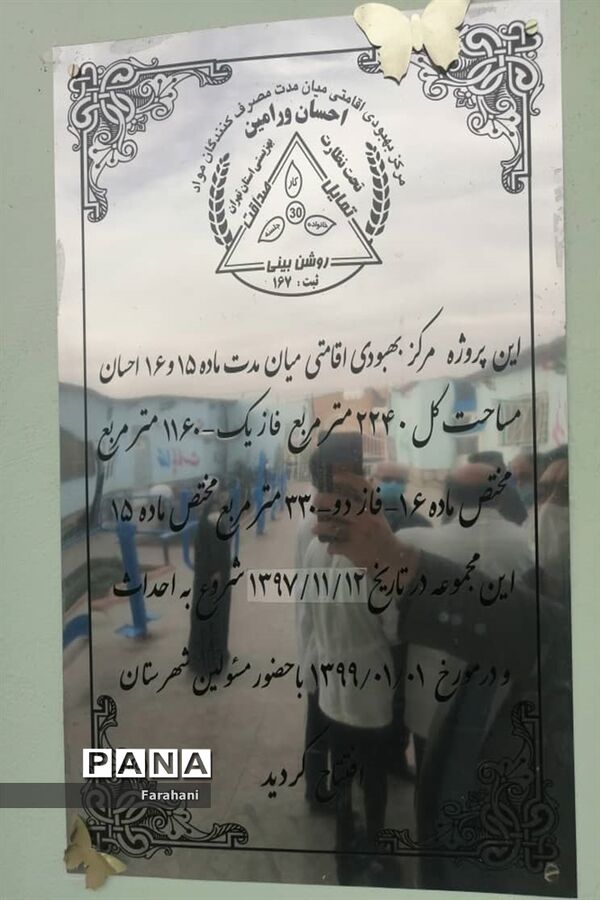 مرکز بهبودی اقامتی میان مدت مصرف کنندگان مواد
احسان ورامین
تحت نظارت
بهزیستی استان تهران
تمایل
صداقت
کار
30
خانواده
جلسه
روشن بینی
ثبت : ۱۶۷
این پروژه مرکز بهبودی اقامتی میان مدت ماده ۱۵ و ۱۶ احسان
مساحت کل ۲۲۴۰ متر مربع فاز یک - ۱۱۶۰ متر مربع
مختص ماده ۱۶ - فاز دو - ۳۳۰ متر مربع مختص ماده ۱۵
این مجموعه در تاریخ ۱۳۹۷/۱۱/۱۲ شروع به احداث
و در مورخ ۱۳۹۹/۰۱/۰۱ با حضور مسئولین شهرستان
افتتاح گردید
PANA
Farahani